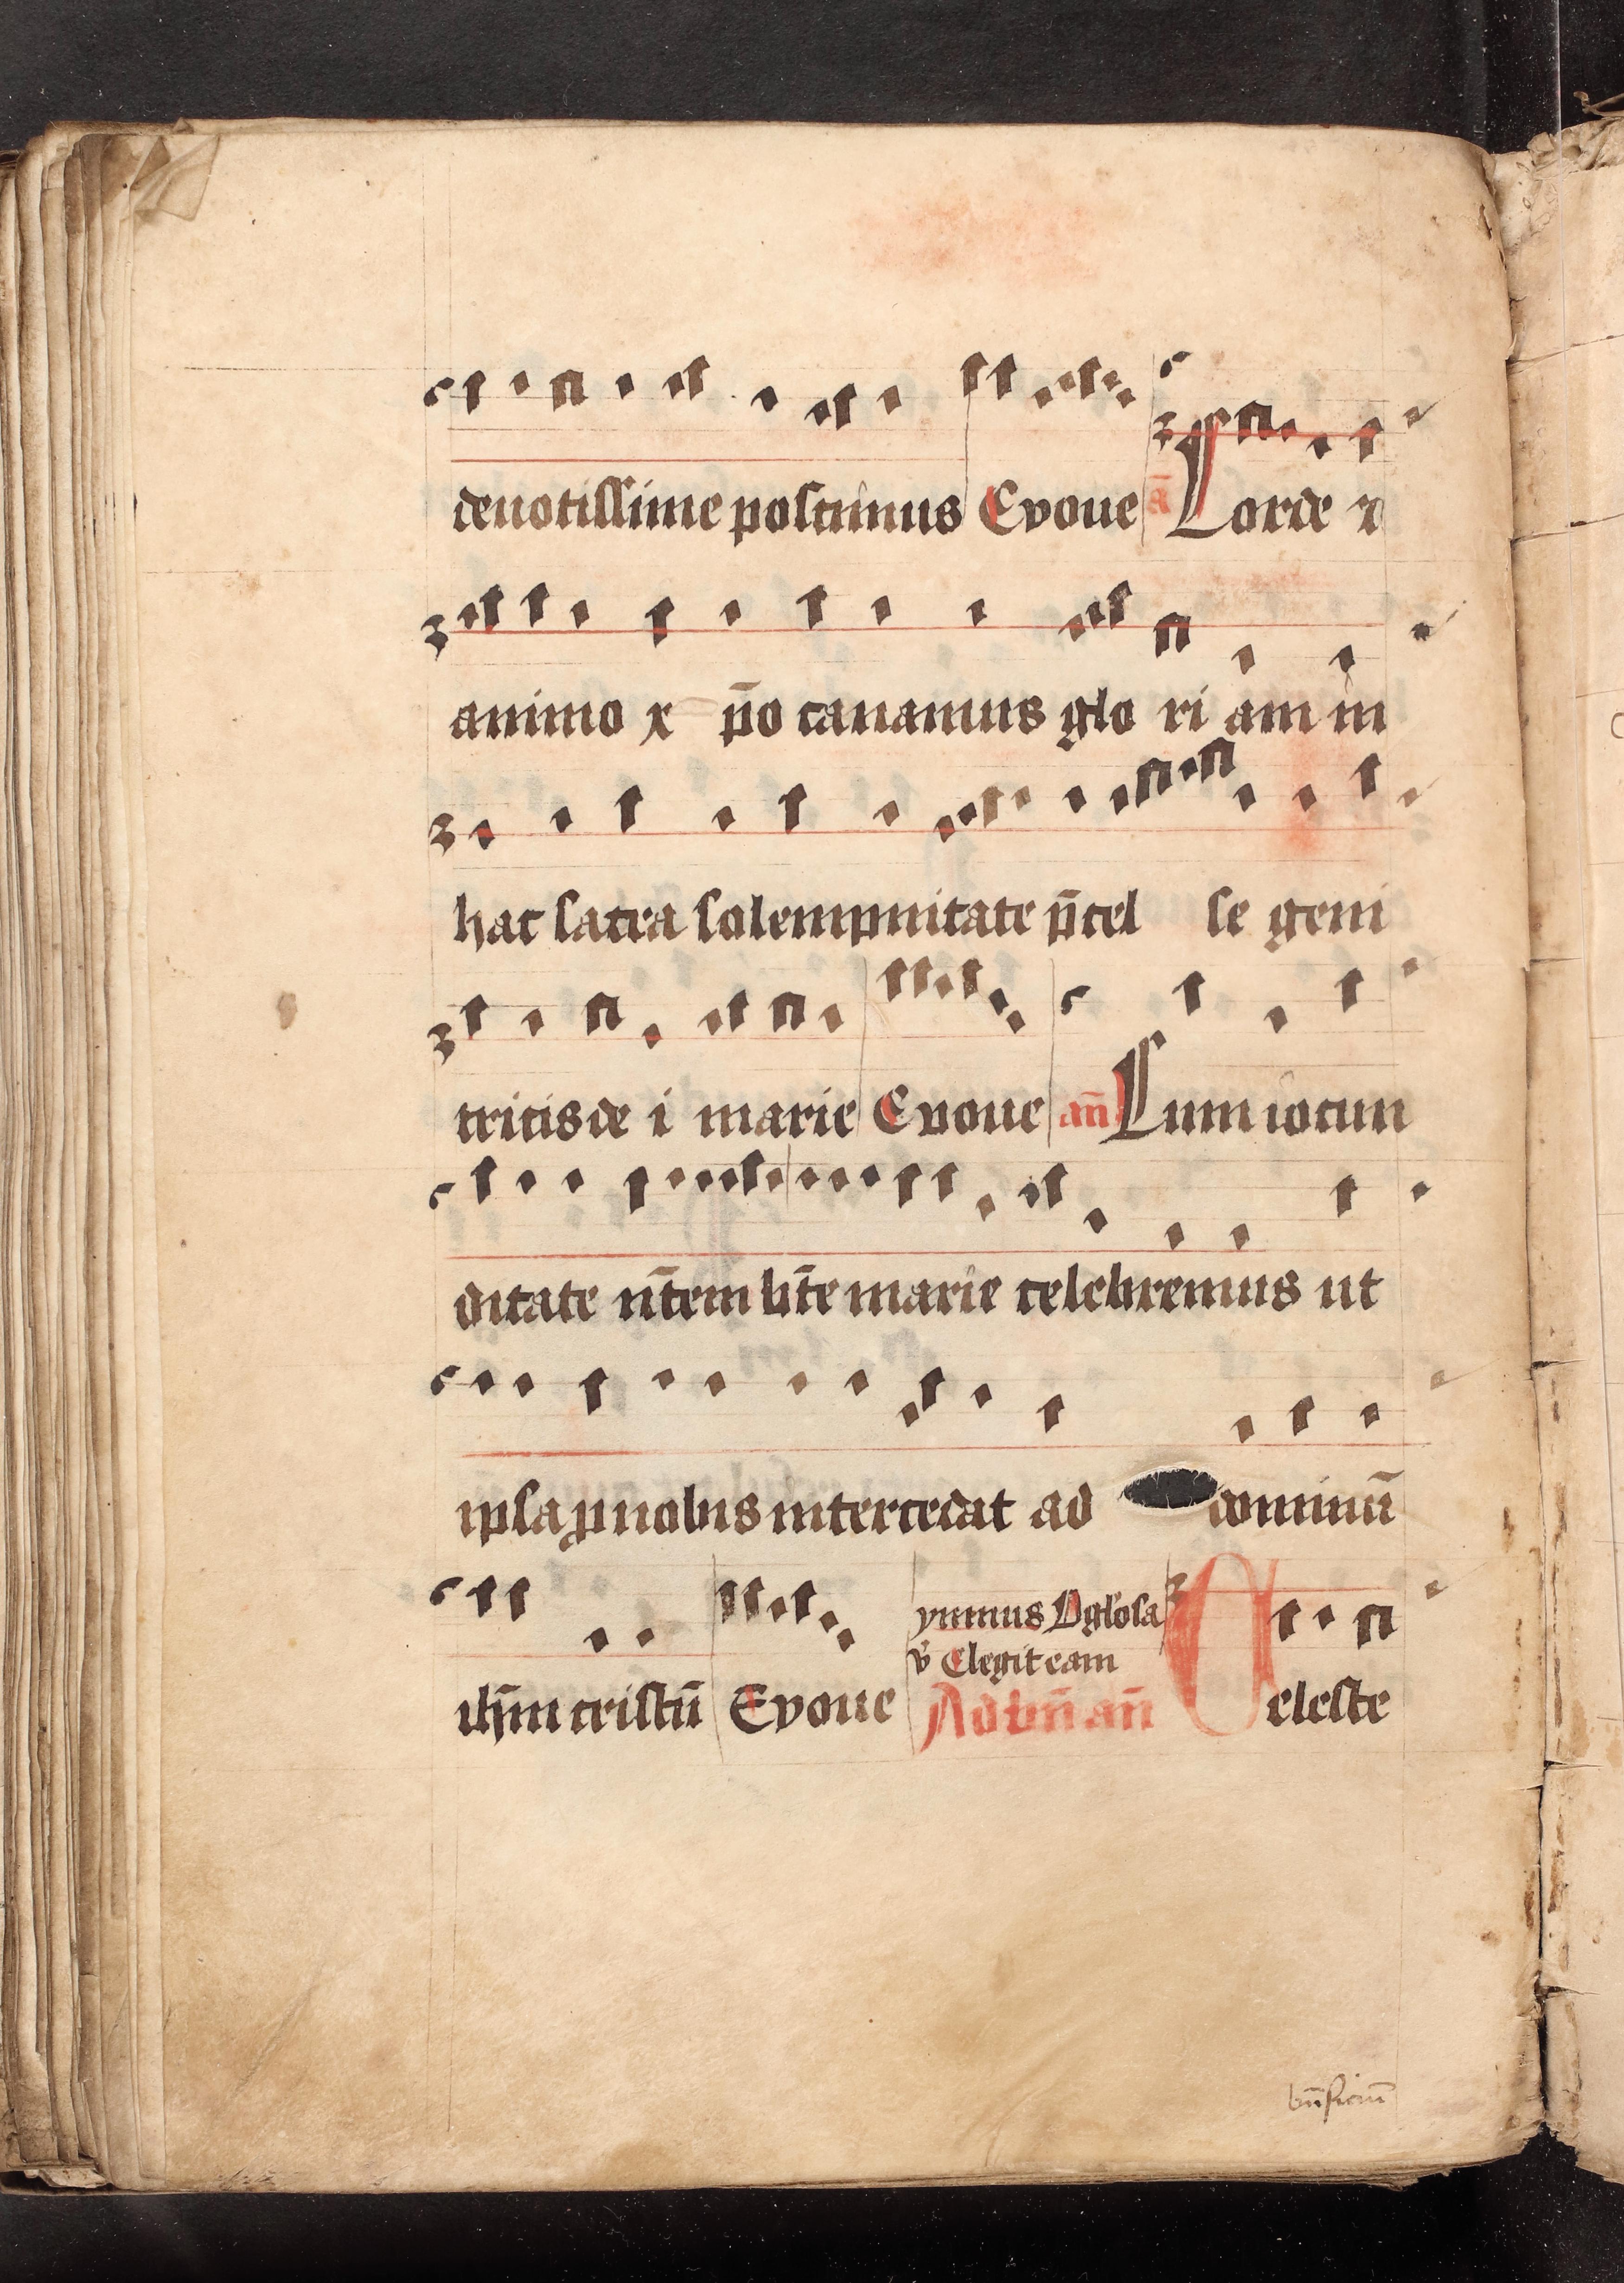 deuotissime poscimus Evoue a̅ Corde ⁊
animo x p̅o canamus glo ri am in
hac sacra solempnitate p̅cel se geni
tricis de i marie Evoue an̅ Cum iocun
ditate n̅tem bt̅e marie celebremus ut
ipsa p nobis intercedat ad dominu̅
ih̅m cristu̅ Evoue ymnus O glosa
v̅ Elegit eam
Ad bn̅ an̅ Celeste